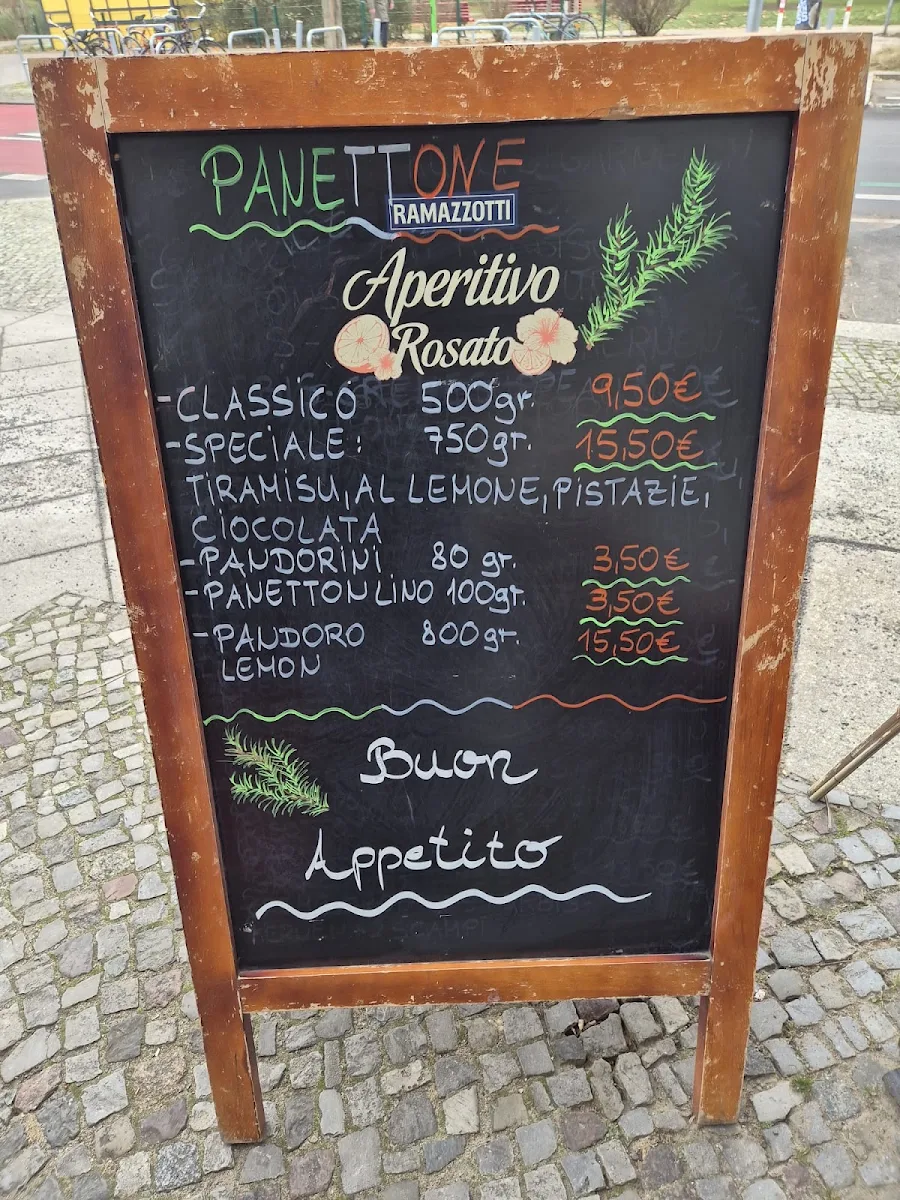 PANETTONE
RAMAZZOTTI
Aperitivo
Rosato
-CLASSICO 500gr. 9,50€
-SPECIALE: 750gr. 15,50€
TIRAMISU, AL LEMONE, PISTAZIE,
CIOCOLATA
-PANDORINI 80 gr. 3,50€
-PANETTONLINO 100gr. 3,50€
-PANDORO 800gr. 15,50€
LEMON
Buon
Appetito